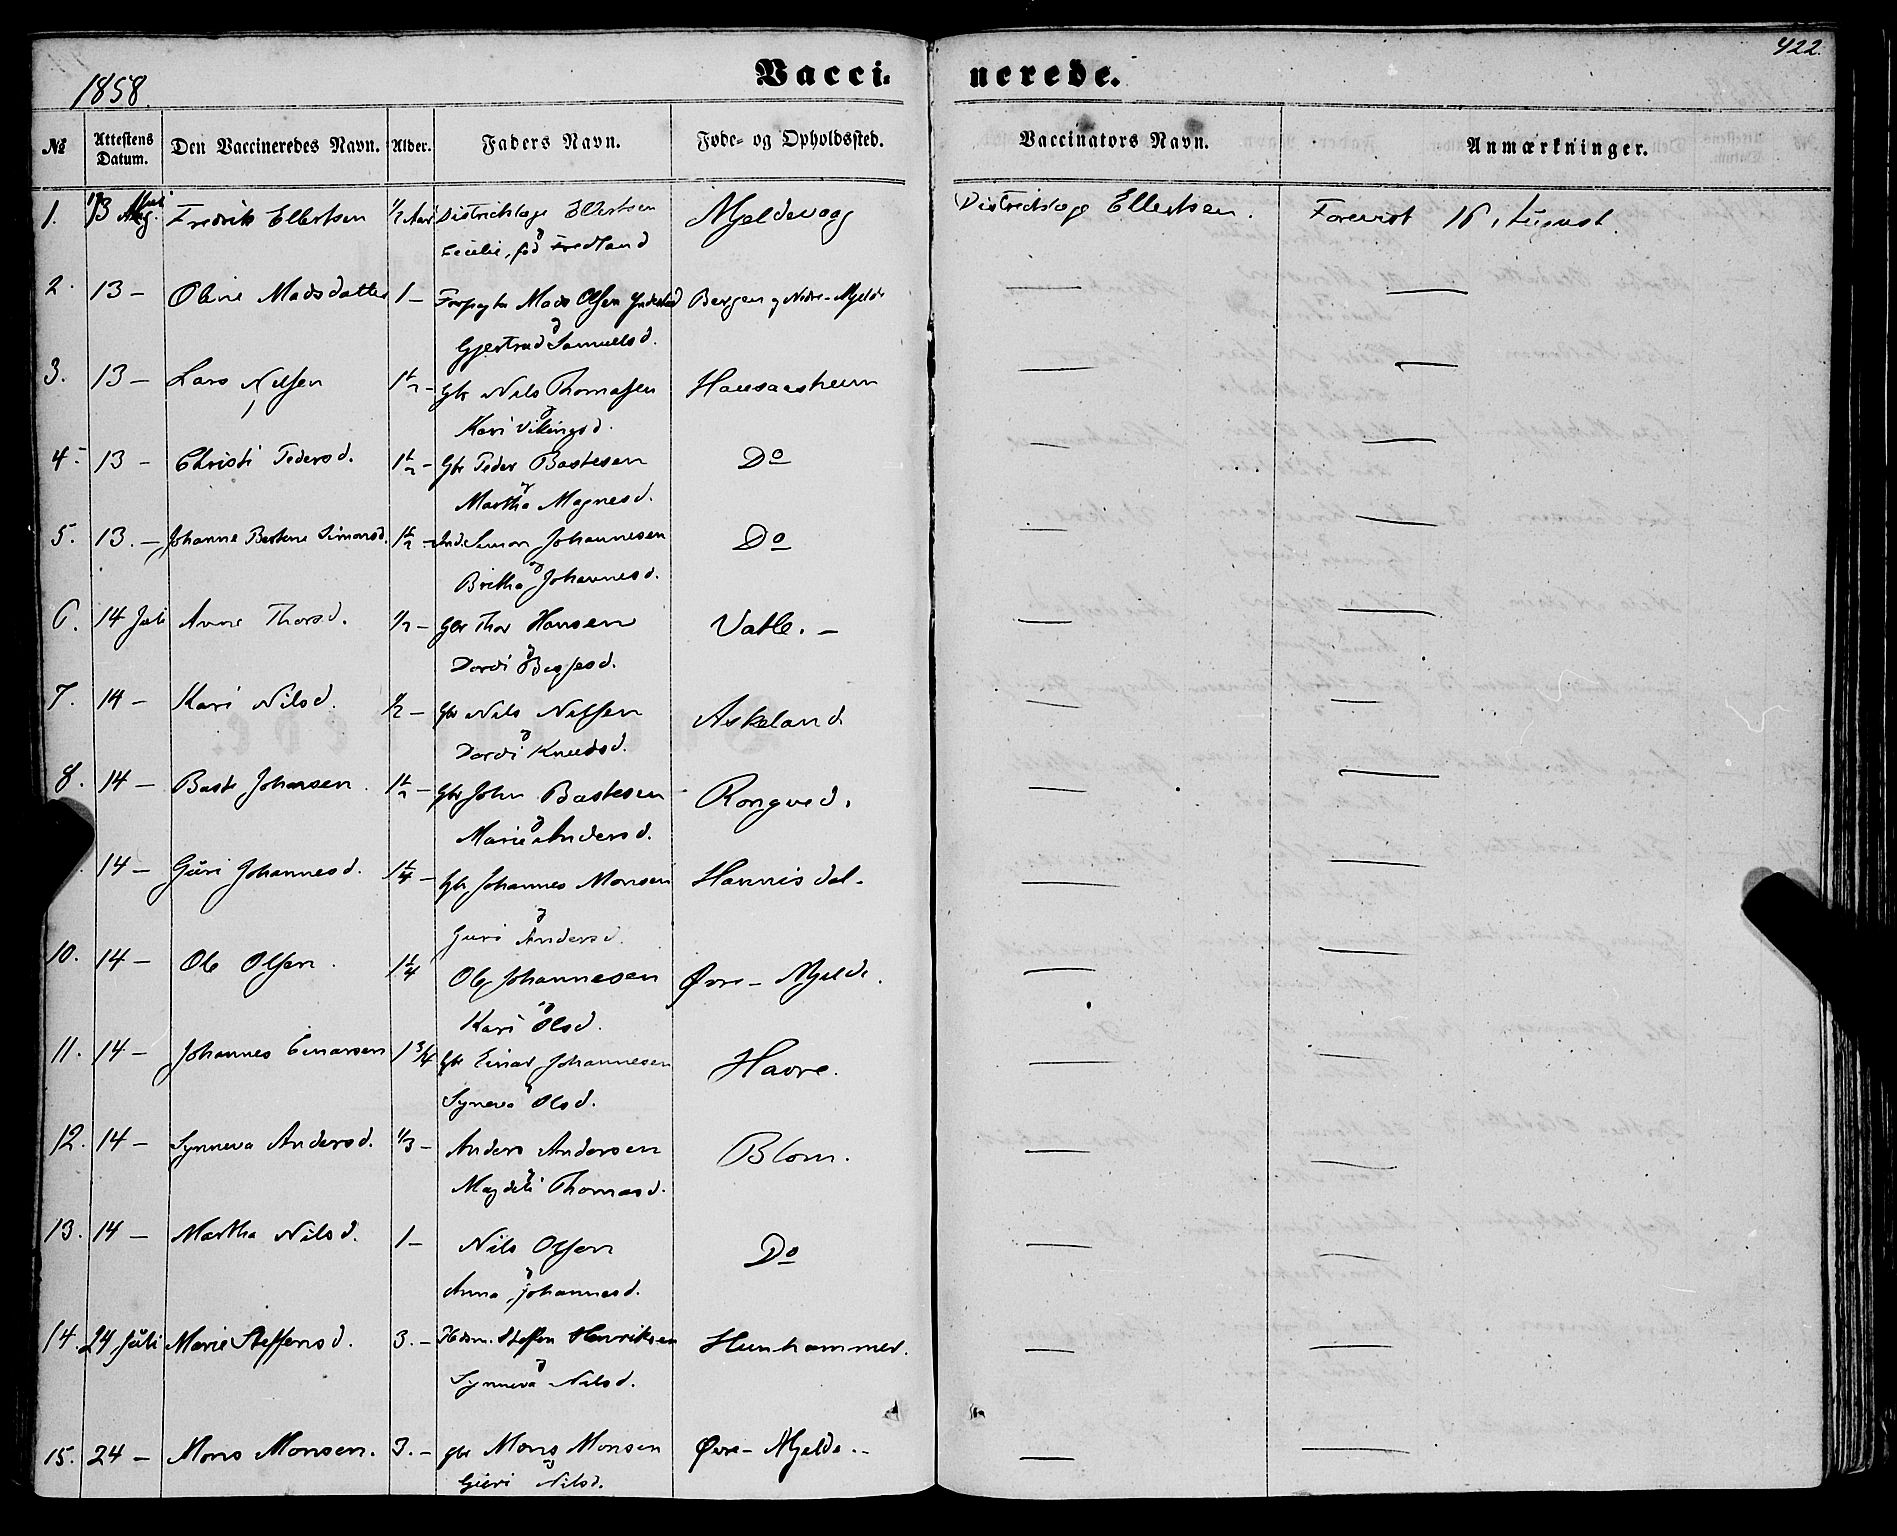 422.
1858.
Vacci-nerede.
№ Attestens Datum. Den Vaccineredes Navn. Alder. Faders Navn. Føde- og Opholdssted. Vaccinators Navn. Anmærkninger.
1. 13 Fredrik Ellertsen 1/2 Aar Districtslæge Ellertsen Mjeldevaag Districtslæge Ellertsen. Foreviist 16 August.
og
Cecilie, fød Fredland
2. 13 – Oline Madsdatter 1 – Mads Olsen Bergen og Nedre-Mjelde — —
og
Gjertrud Samuelsd.
3. 13 – Lars Nilsen 1 1/2 – Gbr Nils Thomasen — —
og
Kari Vikingsd.
4. 13 – Christi Pedersd. 1 1/2 – Gbr Peder Bastesen Do — —
og
Martha Magnesd.
5. 13. – Johanne Bertine Simonsd. 1 1/2 – Ind. Simon Johannesen Do — —
og
Britha Johannesd.
6. 14 Juli Anne Thorsd. 1/2 – Gbr Thor Hansen Vatle. – — —
og
Dordi Børgesd.
7. 14 – Kari Nilsd. 1/2 – Gbr Nils Nilsen Askeland — —
og
Dordi Knudsd.
8. 14 – Baste Johansen. 1 1/2 – Gbr John Bastesen Rongved. — —
og
Marie Andersd.
14 – Guri Johannesd. 1 1/4 – Gbr Johannes Monsen Hannisdal – — —
og
Guri Andersd.
10. 14 – Ole Olsen. 1 1/4 Ole Johannesen Øvre – Mjelde. — —
og
Kari Olsd.
11. 14 – Johannes Einarsen 1 3/4 Gbr Einar Johannesen Havre. — —
og
Syneva Olsd.
12. 14 – Synneva Andersd. 1/3 – Anders Andersen Blom. — —
og
Magdeli Thomasd.
13. 14 – Martha Nilsd. 1 – Nils Olsen Do — —
og
Anna Johannesd.
14. 24 Juli Marie Steffensd. 3. – Husm. Steffen Henriksen Hunhammer. — —
og
Synneva Nilsd.
15. 24 – Mons Monsen. 3. – gbr Mons Monsen Øvre – Mjelde. – — —
og
Guri Nilsd.